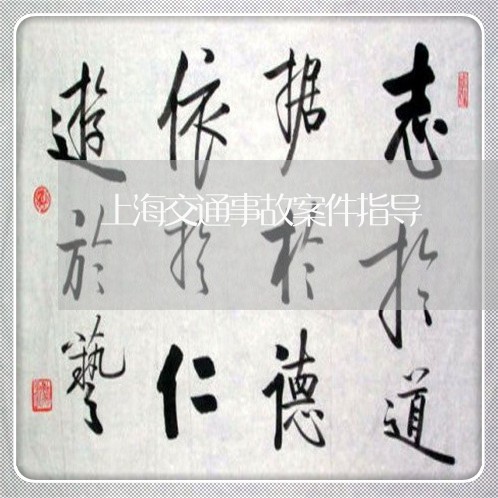 志於道
据於德
依於仁
遊於藝
上海交通事故案件指导